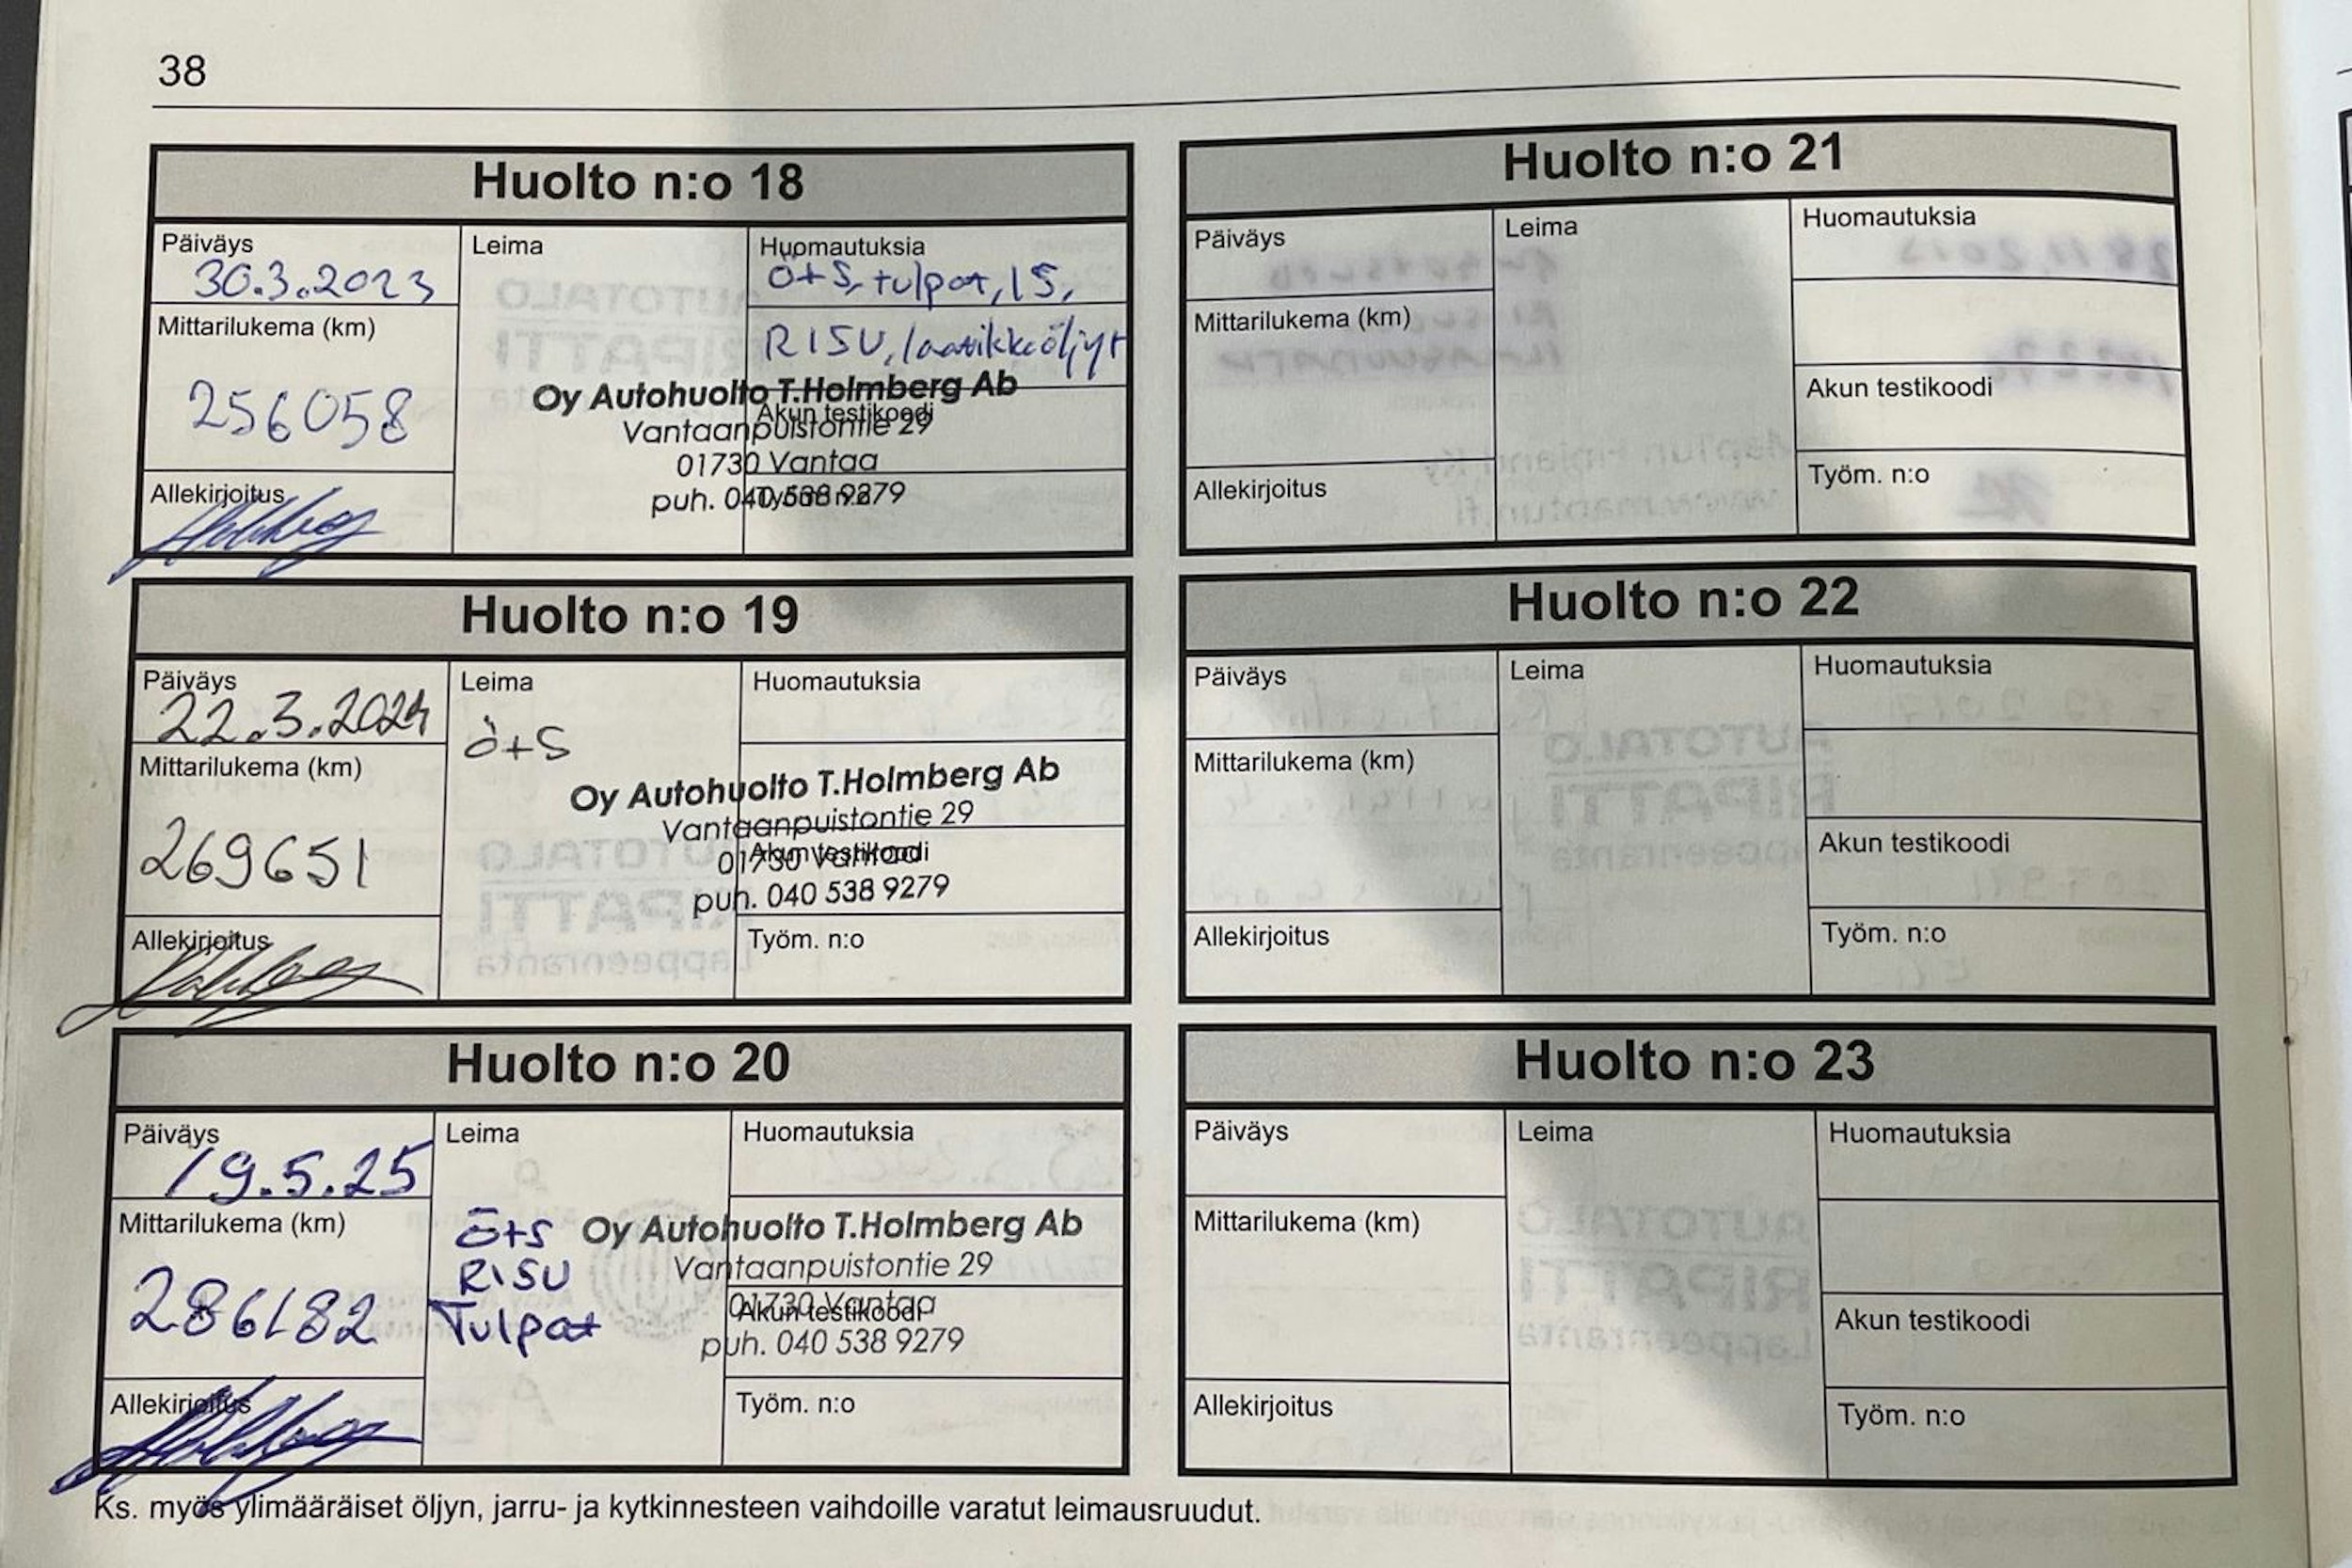 38
Huolto n:o 18
Päiväys
30.3.2023
Mittarilukema (km)
256058
Allekirjoitus
Leima
Huomautuksia
Ö+S, tulpat, IS,
RISU, laatikkoöljyt
Oy Autohuolto T.Holmberg Ab
Akun testikoodi
Vantaanpuistontie 29
01730 Vantaa
Työm. n:o
puh. 040 538 9279
Huolto n:o 19
Päiväys
22.3.2024
Mittarilukema (km)
269651
Allekirjoitus
Leima
ö+S
Huomautuksia
Oy Autohuolto T.Holmberg Ab
Vantaanpuistontie 29
01730 Vantaa
Akun testikoodi
puh. 040 538 9279
Työm. n:o
Huolto n:o 20
Päiväys
19.5.25
Mittarilukema (km)
286182
Allekirjoitus
Leima
Ö+S
RISU
Tulpat
Huomautuksia
Oy Autohuolto T.Holmberg Ab
Vantaanpuistontie 29
01730 Vantaa
Akun testikoodi
puh. 040 538 9279
Työm. n:o
Huolto n:o 21
Päiväys
Mittarilukema (km)
Allekirjoitus
Leima
Huomautuksia
Akun testikoodi
Työm. n:o
Huolto n:o 22
Päiväys
Mittarilukema (km)
Allekirjoitus
Leima
Huomautuksia
Akun testikoodi
Työm. n:o
Huolto n:o 23
Päiväys
Mittarilukema (km)
Allekirjoitus
Leima
Huomautuksia
Akun testikoodi
Työm. n:o
Ks. myös ylimääräiset öljyn, jarru- ja kytkinnesteen vaihdoille varatut leimausruudut.